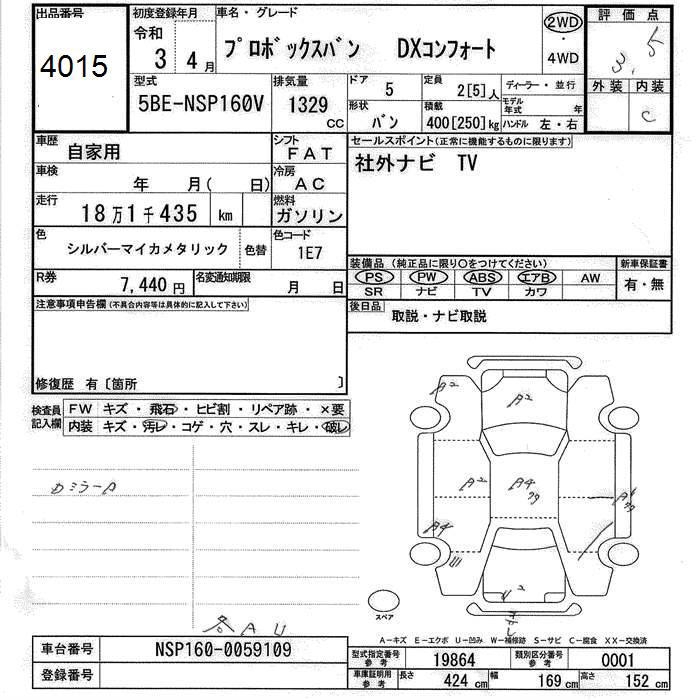 出品番号
4015
初度登録年月
令和
3 4月
車名・グレード
プロボックスバン DXコンフォート
2WD
・
4WD
評価点
3.5
外装 内装
C
型式
5BE-NSP160V
排気量
1329 CC
ドア 5
定員 2[5]人
ディーラー・並行
形状 バン
積載 400[250]kg
モデル年式 年
ハンドル 左・右
車歴 自家用
シフト FAT
セールスポイント(正常に機能するものに限ります)
社外ナビ TV
車検 年 月( 日)
冷房 AC
走行 18万1千435 km
燃料 ガソリン
色 シルバーマイカメタリック 色替
色コード 1E7
装備品 (純正品に限り〇をつけてください)
新車保証書
有・無
PS PW ABS エアB AW
SR ナビ TV カワ
R券 7,440円
名変通知期限 月 日
後日品 取説・ナビ取説
注意事項申告欄(不具合内容等は具体的に記入して下さい)
修復歴 有〔箇所 〕
検査員記入欄
FW キズ・飛石・ヒビ割・リペア跡・×要
内装 キズ・汚レ・コゲ・穴・スレ・キレ・破レ
DミラーA
A2
A2
A2
A4
A4
スペア
各AU
A-キズ E-エクボ U-凹み W-補修跡 S-サビ C-腐食 XX-交換済
車台番号 NSP160-0059109
登録番号
型式指定番号 参考 19864
類別区分番号 参考 0001
車庫証明用 参考
長さ 424cm
幅 169cm
高さ 152cm